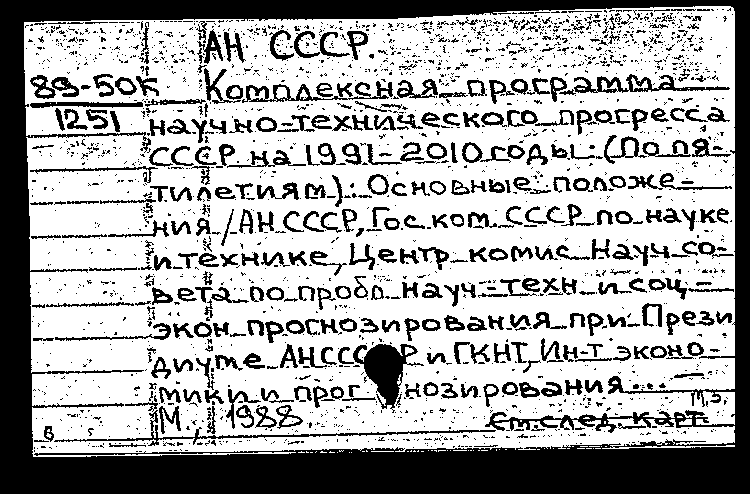 АН СССР.
89-50К Комплексная программа
1251 научно-технического прогресса
СССР на 1991-2010 годы: (По пя-
тилетиям): Основные положе-
ния / АН СССР, Гос. ком. СССР по науке
и технике, Центр. комис. Науч. со-
вета по пробл. науч.-техн. и соц.-
экон. прогнозирования при Прези
диуме АН СССР и ГКНТ, Ин-т эконо-
мики и прогнозирования...
М., 1988.
См. след. карт.
в